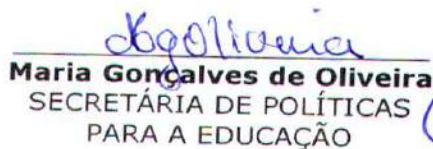 Maria Gonçalves de Oliveira
SECRETÁRIA DE POLÍTICAS
PARA A EDUCAÇÃO